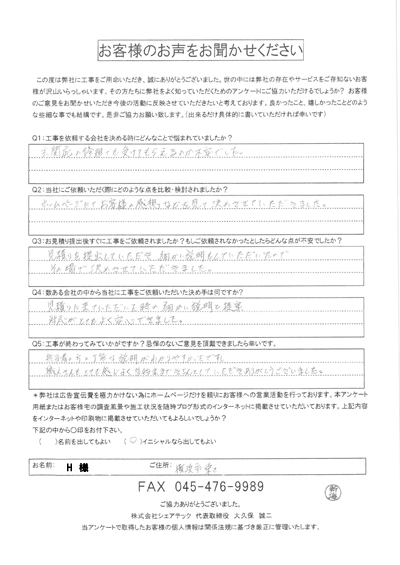 お客様のお声をお聞かせください
この度は弊社に工事をご用命いただき、誠にありがとうございました。世の中には弊社の存在やサービスをご存知ないお客
様が沢山いらっしゃいます。その方たちに弊社をよく知っていただくためのアンケートにご協力いただけるでしょうか? お客様
のご意見をお聞かせいただき今後の活動に反映させていただきたいと考えております。良かったこと、嬉しかったことどのよう
な些細な事でも結構です。是非ご協力お願い致します。（出来るだけ具体的に書いていただければ幸いです）
Q1:工事を依頼する会社を決める時にどんなことで悩まれていましたか?
玄関前の修繕でも受けてもらえるのか不安でした。
Q2:当社にご依頼いただく際にどのような点を比較・検討されましたか?
ホームページ お客様の感想などを見て決めさせていただきました。
Q3:お見積り提出後すぐに工事をご依頼されましたか?もしご依頼されなかったとしたらどんな点が不安でしたか?
見積りを提出していただき 細かい説明もしていただいたので
その場で決めさせていただきました。
Q4:数ある会社の中から当社に工事をご依頼いただいた決め手は何ですか?
見積りに来ていただいた時の細かい説明と提案
対応がとてもよく安心できました。
Q5:工事が終わってみていかがでしたか?忌憚のないご意見を頂戴できましたら幸いです。
担当者の方の丁寧な説明がわかりやすかったです。
職人さんもとても感じよく
ありがとうございました。
＊弊社は広告宣伝費を極力かけない為にホームページだけを頼りにお客様への営業活動を行っております。本アンケート
用紙またはお客様宅の調査風景や施工状況を随時ブログ形式のインターネットに掲載させていただいております。上記内容
をインターネットや印刷物に掲載させていただいてもよろしいでしょうか?
下記の中から〇印をお付下さい。
（　）名前を出してもよい （〇）イニシャルなら出してもよい
お名前: H 様 ご住所: 横浜市
FAX 045-476-9989
ご協力ありがとうございました。
株式会社シェアテック 代表取締役 大久保 誠二
当アンケートで取得したお客様の個人情報は関係法規に基づき厳正に管理いたします。